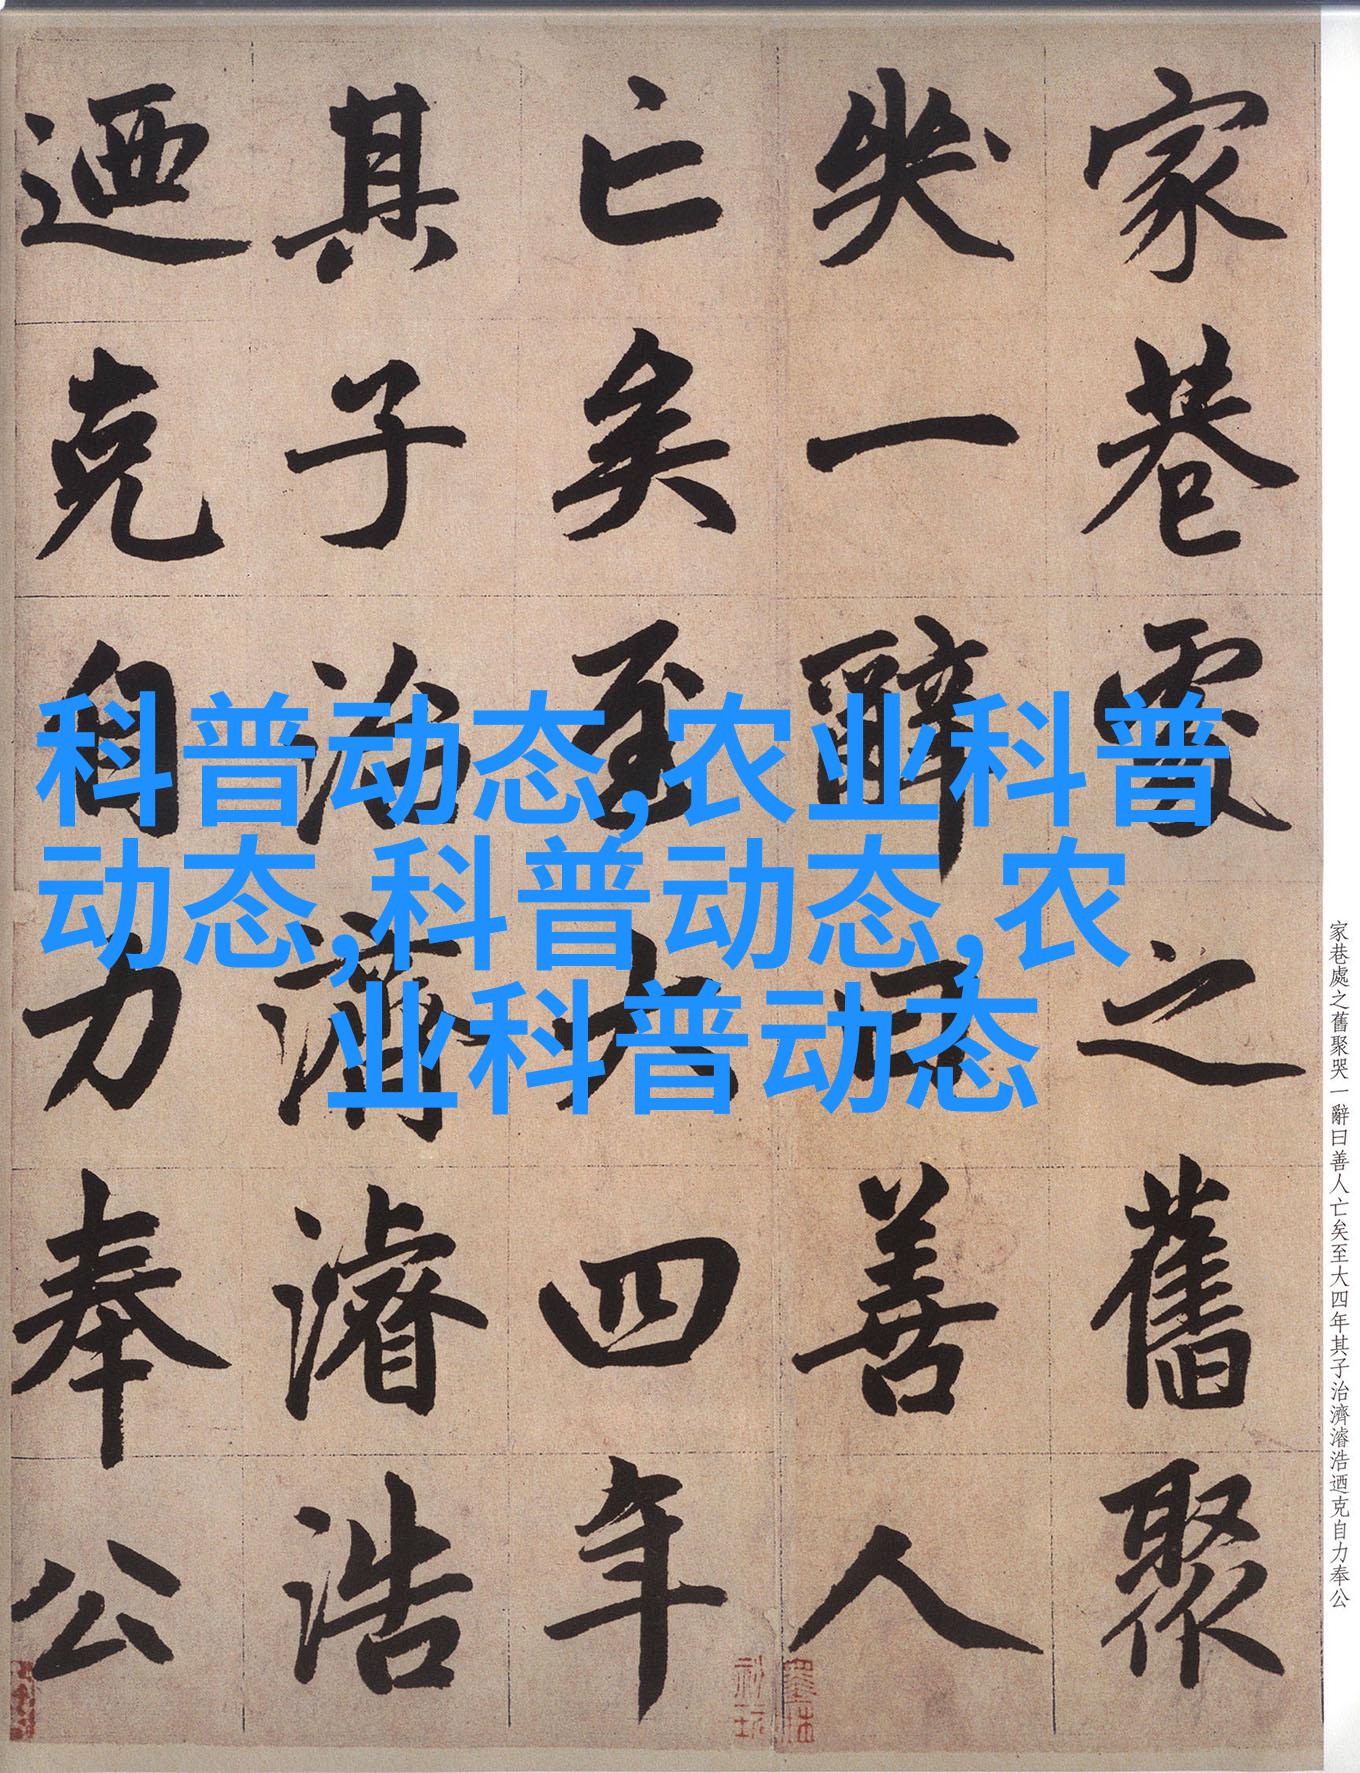 家巷處之舊聚
哭一辭曰善人
亡矣至大四年
其子治濟濬浩
迺克自力奉公
科普动态,农业科普
动态,科普动态,农
业科普动态
家巷處之舊聚哭一辭曰善人亡矣至大四年其子治濟濬浩迺克自力奉公